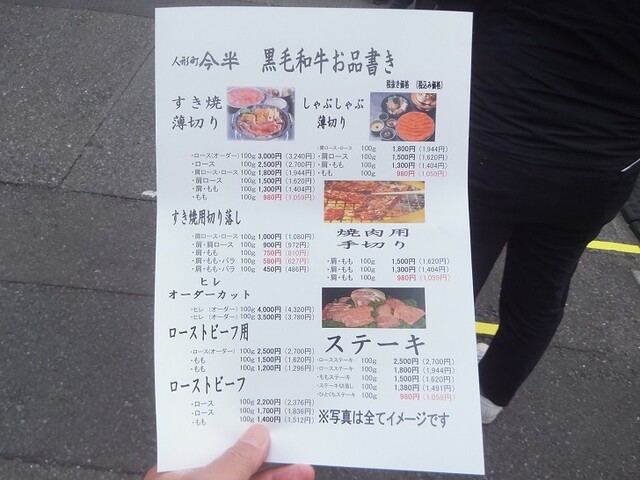 人形町 今半 黒毛和牛お品書き
税抜き価格 (税込み価格)
すき焼
薄切り
・ロース(オーダー) 100g 3,000円(3,240円)
・ロース 100g 2,500円(2,700円)
・肩ロース・ロース 100g 1,800円(1,944円)
・肩ロース 100g 1,500円(1,620円)
・肩・もも 100g 1,300円(1,404円)
・もも 100g 980円(1,059円)
すき焼用切り落し
・肩ロース・ロース 100g 1,000円(1,080円)
・肩・肩ロース 100g 900円(972円)
・肩・もも 100g 750円(810円)
・肩・もも・バラ 100g 580円(627円)
・肩・もも・バラ 100g 450円(486円)
ヒレ
オーダーカット
・ヒレ(オーダー) 100g 4,000円(4,320円)
・ヒレ(オーダー) 100g 3,500円(3,780円)
ローストビーフ用
・ロース(オーダー) 100g 2,500円(2,700円)
・もも 100g 1,500円(1,620円)
・もも 100g 1,200円(1,296円)
ローストビーフ
・ロース 100g 2,200円(2,376円)
・ロース 100g 1,700円(1,836円)
・もも 100g 1,400円(1,512円)
しゃぶしゃぶ
薄切り
・肩ロース・ロース 100g 1,800円(1,944円)
・肩ロース 100g 1,500円(1,620円)
・肩・もも 100g 1,300円(1,404円)
・もも 100g 980円(1,059円)
焼肉用
手切り
・肩・もも 100g 1,500円(1,620円)
・肩・もも 100g 1,300円(1,404円)
・肩・もも 100g 980円(1,059円)
ステーキ
・ロースステーキ 100g 2,500円(2,700円)
・ロースステーキ 100g 1,800円(1,944円)
・ももステーキ 100g 1,500円(1,620円)
・ステーキ切落し 100g 1,380円(1,491円)
・ひとくちステーキ 100g 980円(1,059円)
※写真は全てイメージです